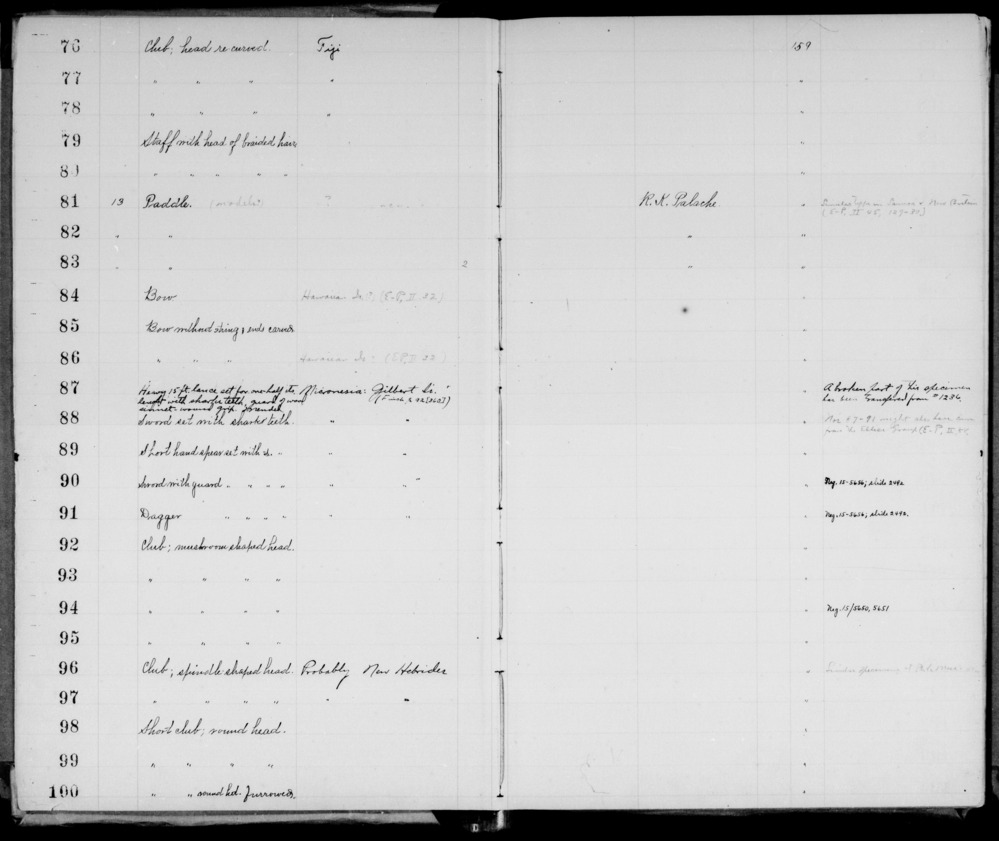 76 Club; head re curved. Fiji 159
77 " " " " "
78 " " " " "
79 Staff with head of braided hair "
80 " " " " " "
81 13 Paddle. (models) ? R. K. Palache " New
(E-P, II 48,
82 " " " "
83 " " 2 " "
84 Bow Hawaiian Is.? (E-P, II 32) "
85 Bow without string; ends carved "
86 " " " Hawaiian Is. (E-P, II 32) "
87 Heavy 15 ft. lance set for one half its Micronesia: Gilbert Is. " A broken part of this specimen
lenght with sharks teeth, guard of has been transfered from # 1286.
sinnet wound grip
88 Sword set with sharks teeth. " " " might also have
from the Ellice Group (E-P, II,
89 Short hand spear set with s. " " " "
90 Sword with guard " " " " " " " Neg. 15-5656; slide 2492
91 Dagger " " " " " " " Neg. 15-5656; slide 2492.
92 Club; mushroom shaped head. "
93 " " " " "
94 " " " " " Neg. 15/5650, 5651
95 " " " " "
96 Club; spindle shaped head. Probably New Hebrides "
97 " " " " " " "
98 Short club; round head. "
99 " " " " "
100 " " round hd. furrowed "